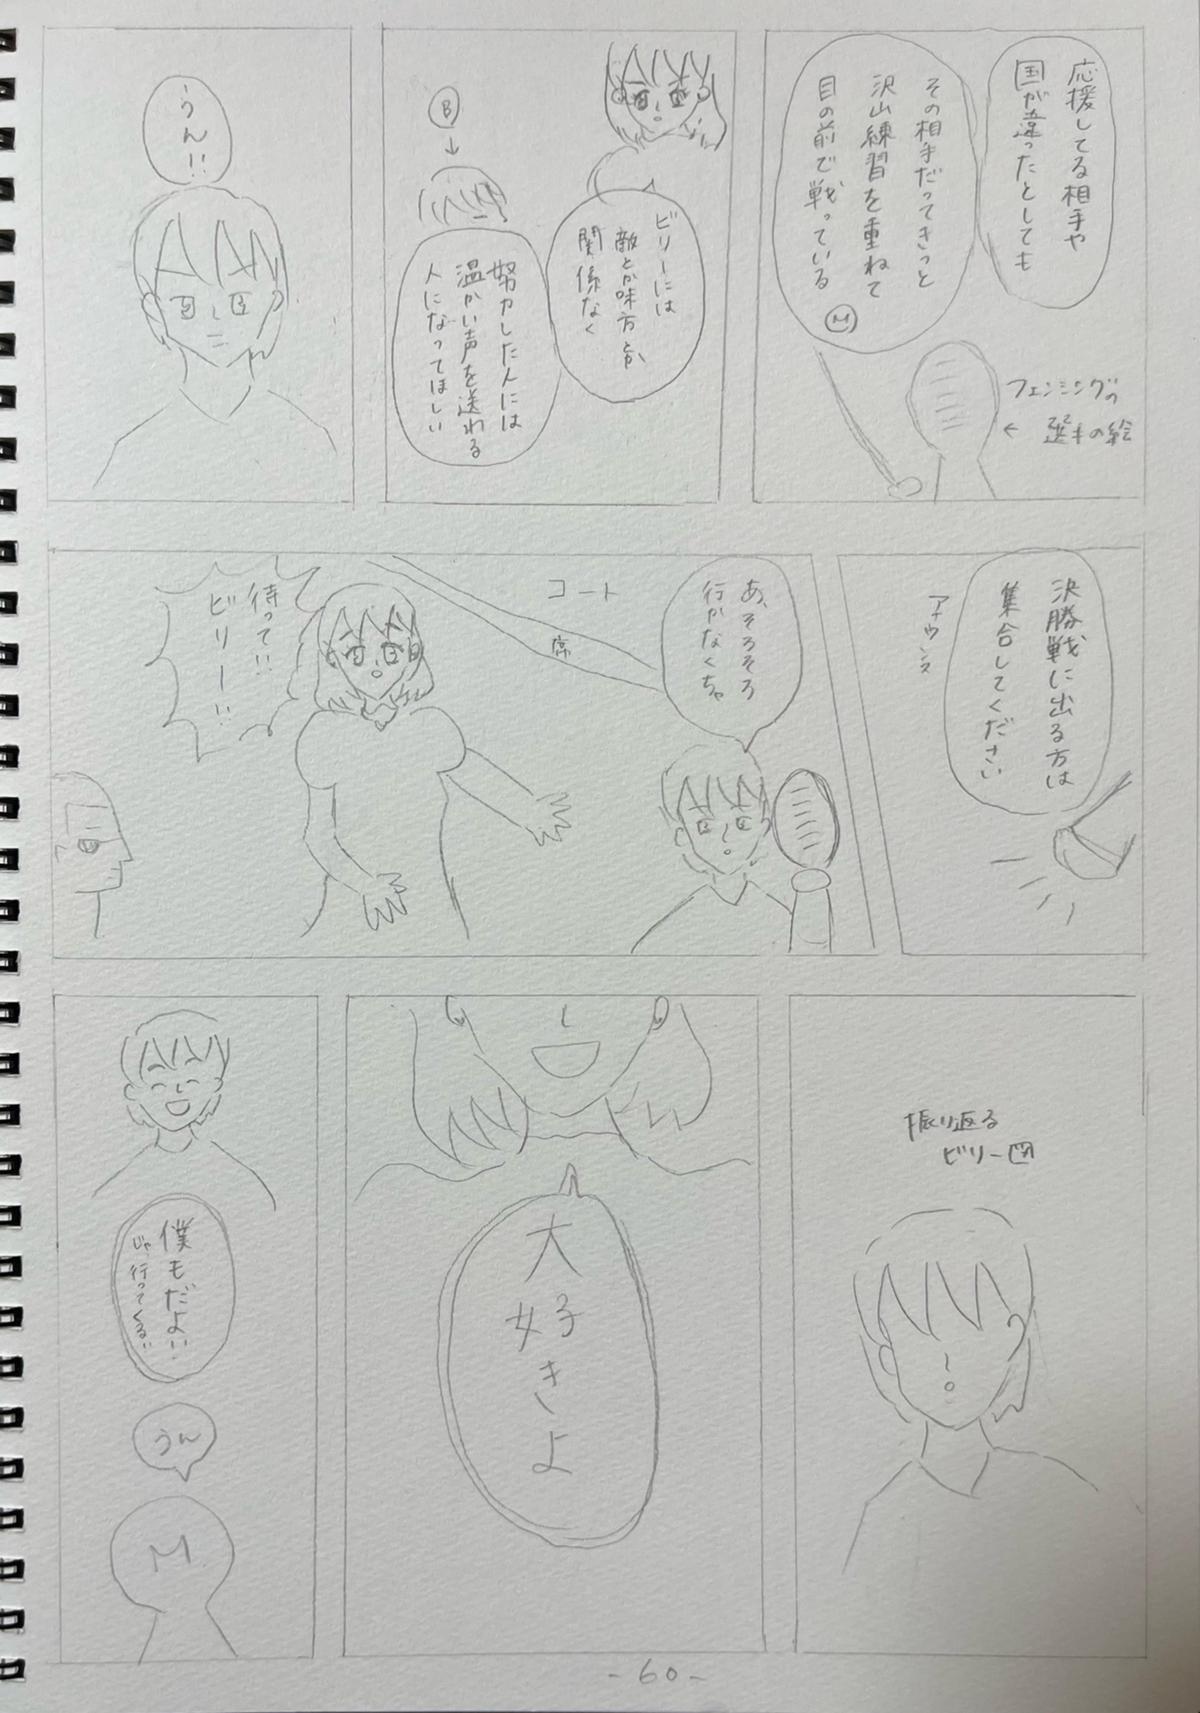 応援してる相手や
国が違ったとしても
その相手だってきっと
沢山練習を重ねて
目の前で戦っている
M
フェンシングの
← 選手の絵
ビリーには
敵とか味方とか
関係なく
B
↓
努力した人には
温かい声を送れる
人になってほしい
うん!!
決勝戦に出る方は
集合してください
アナウンス
あ、そろそろ
行かなくちゃ
コート
席
待って!!
ビリー!!
振り返る
ビリー図
大好きよ
僕もだよ!!
じゃ、行ってくる!!
うん
M
-60-